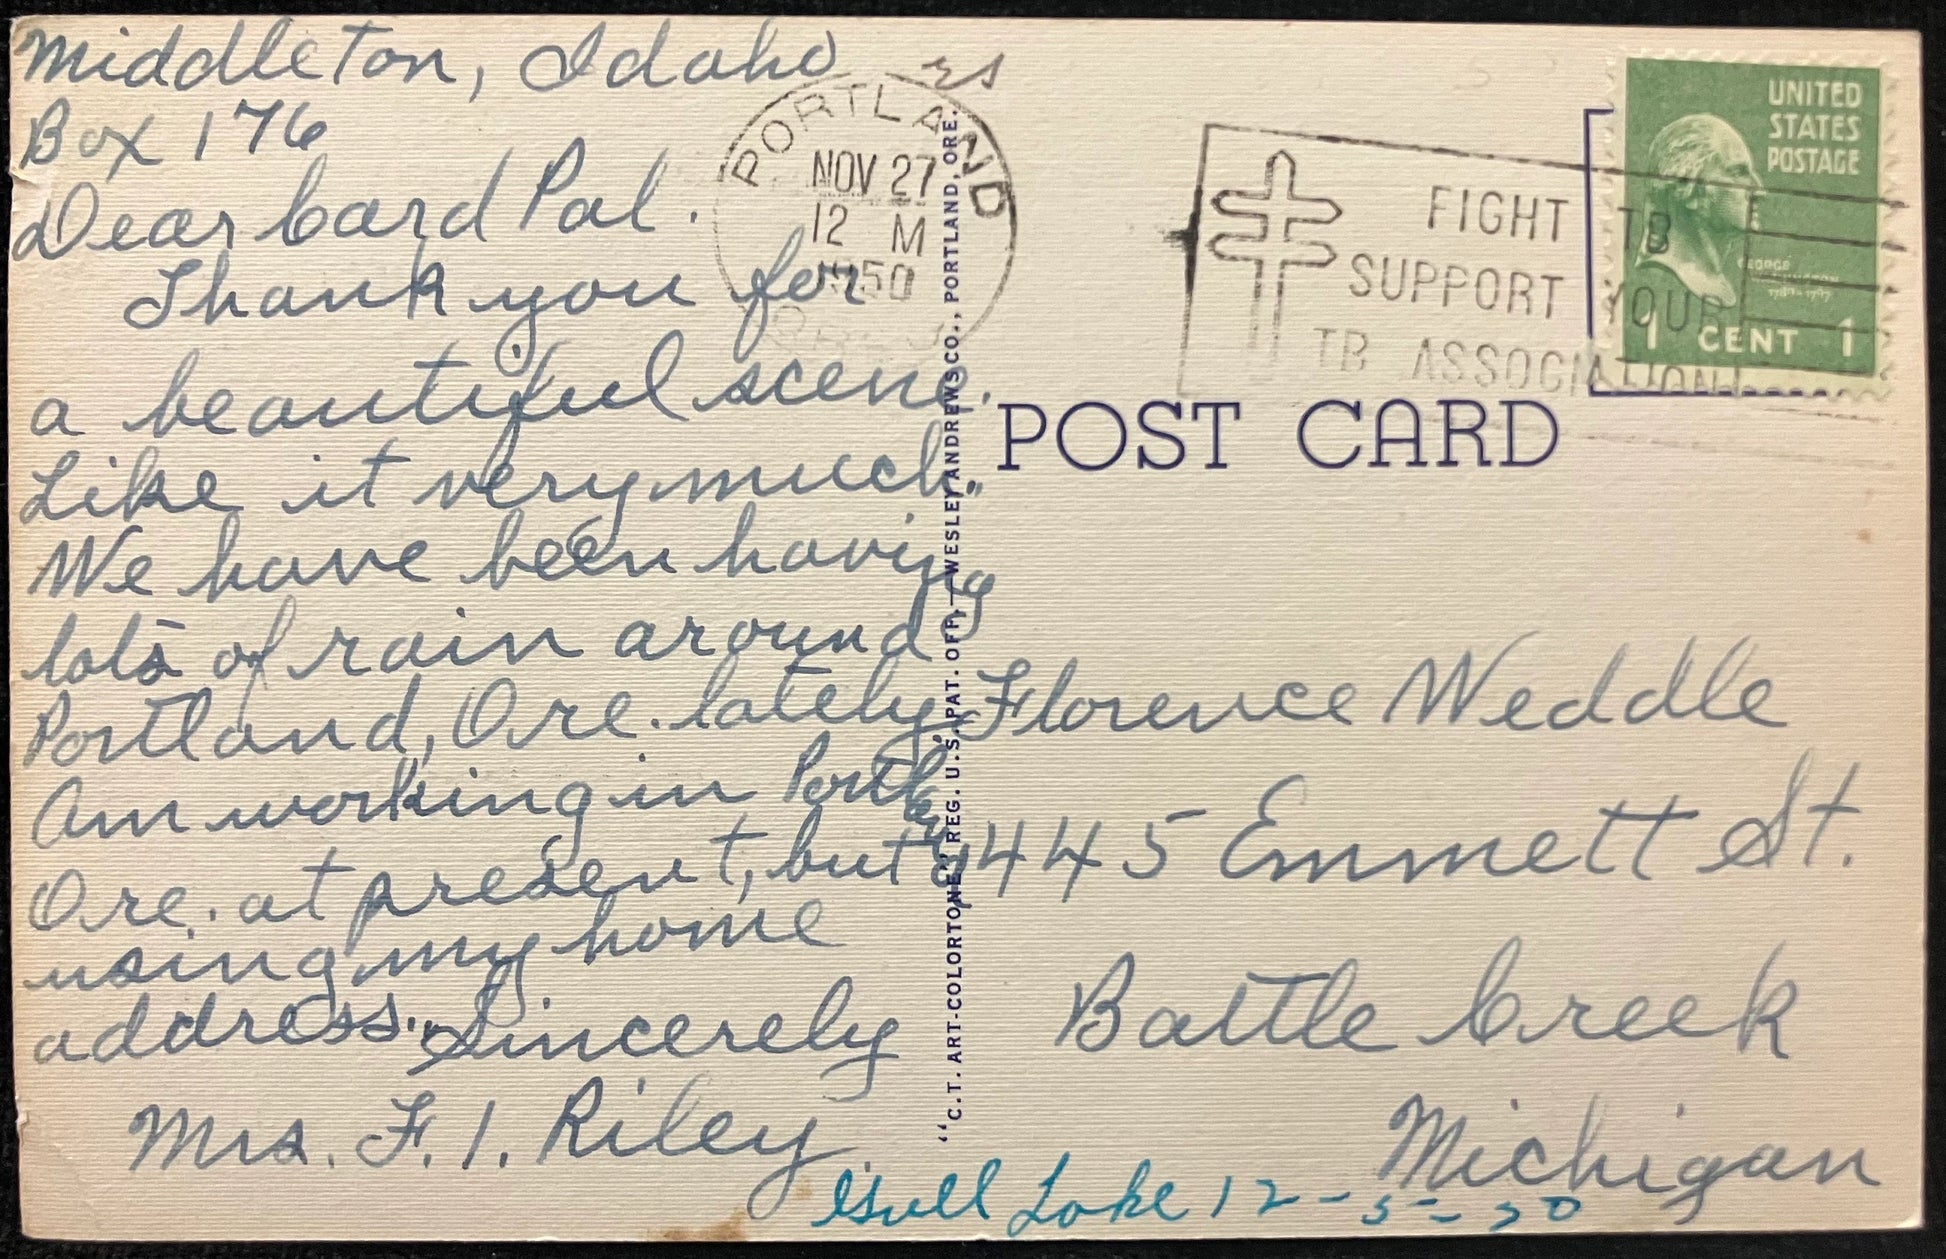 Middleton, Idaho
Box 176
Dear Card Pal.
Thank you for
a beautiful scene.
Like it very much.
We have been having
lots of rain around
Portland, Ore. lately.
Am working in Portland,
Ore. at present, but
using my home
address. Sincerely
Mrs. F. I. Riley
PORTLAND
NOV 27
12 M
1950
"C.T. ART-COLORTONE" REG. U.S. PAT. OFF.—WESLEY ANDREWS CO., PORTLAND, ORE.
FIGHT TB
SUPPORT YOUR
TB ASSOCIATION
UNITED
STATES
POSTAGE
GEORGE
WASHINGTON
1789-1797
1 CENT 1
POST CARD
Florence Weddle
445 Emmett St.
Battle Creek
Michigan
Gull Lake 12-5-50